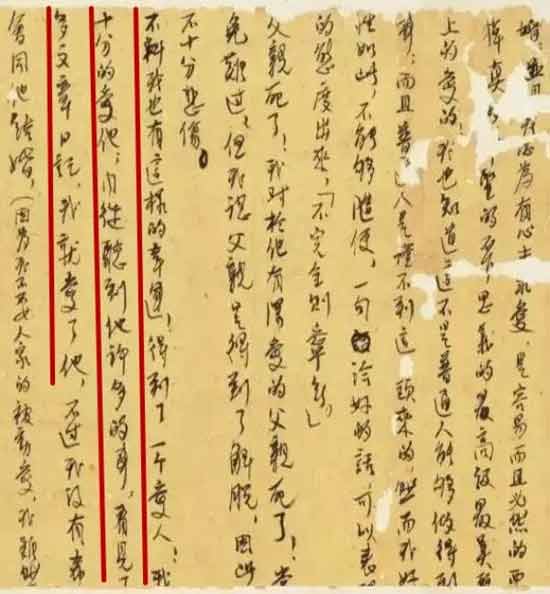 我以為有心去求愛,是容易而且必然的
真 聖的不 思議的最高級最美
上的愛的,我也知道這不是普通人能夠做得到
而且普 人是 不到這頭來的,然而我好
性如此,不能夠隨便,一句恰好的話,可以表
的態度出來,「不完全則寧無」
父親死了!我對於他有深愛的父親死了!當
免難過,但我認父親是得到了解脫,因此
不十分悲傷。
不料我也有這樣的幸運!得到了一个愛人!我
十分的愛他;自從聽到他許多的事,看見了
多文章日記,我就愛了他,不過我沒有希
會同他結婚,(因為我不要人家的被動愛,我雖然